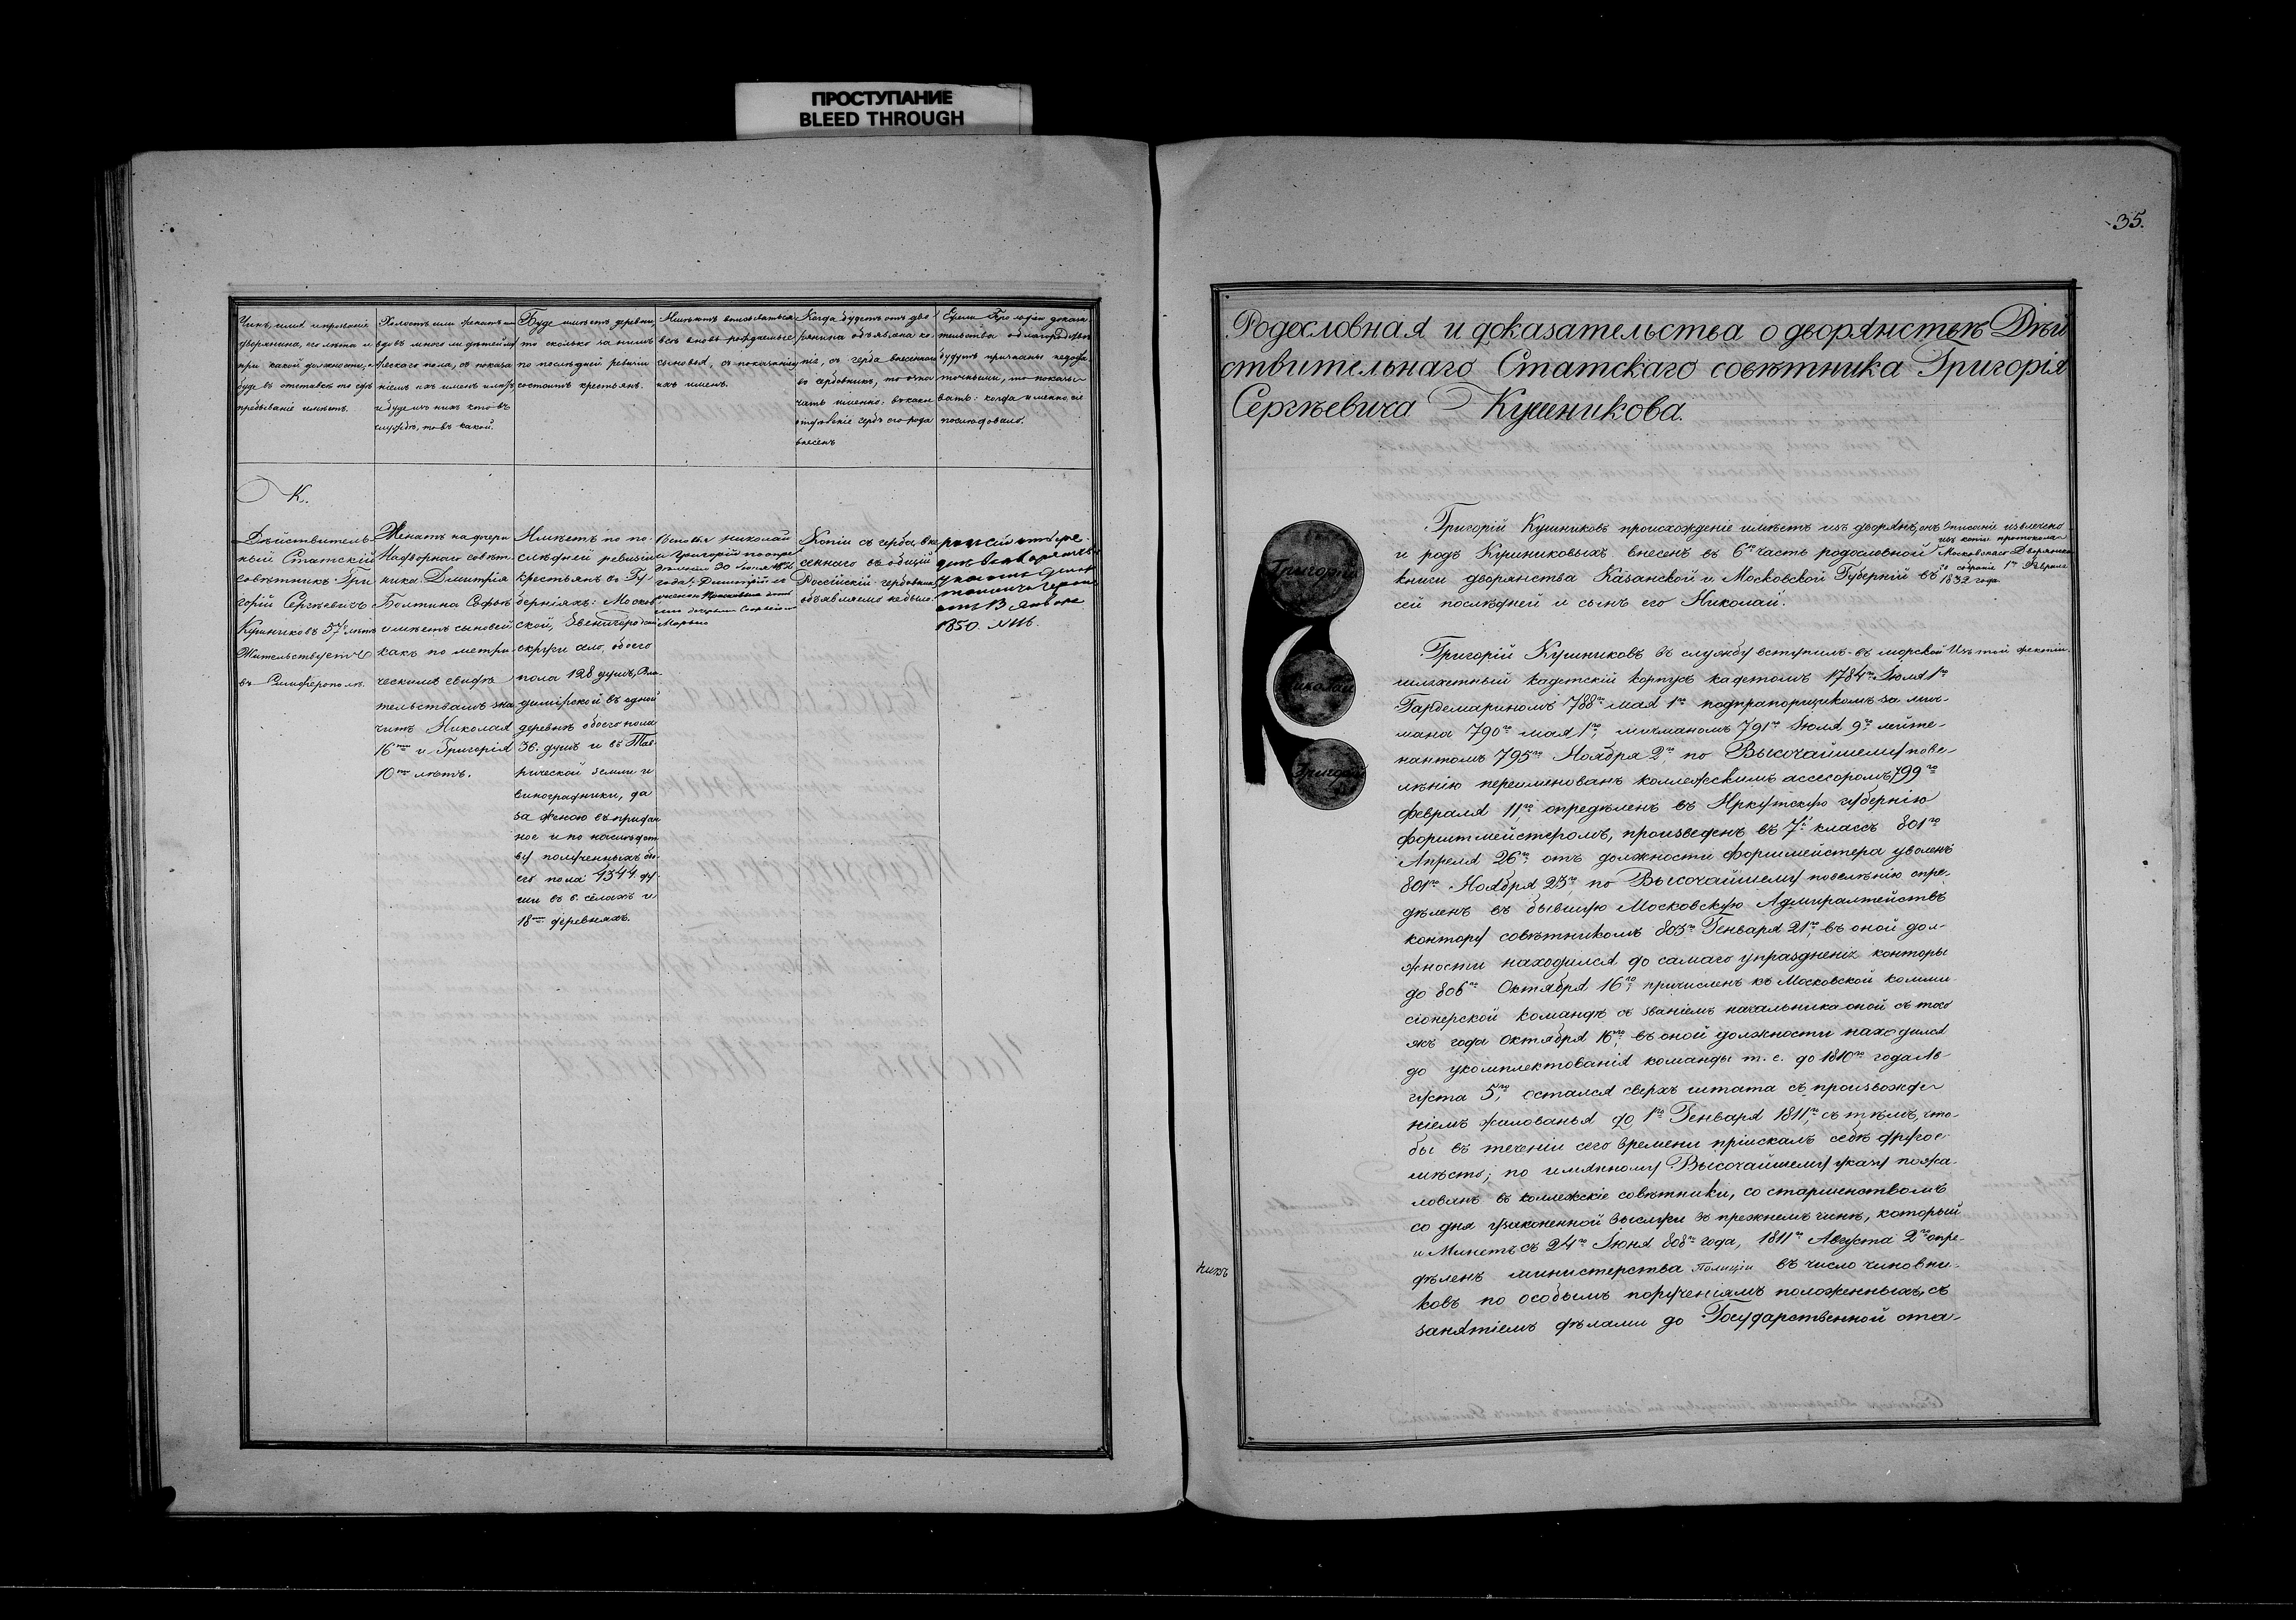 ПРОСТУПАНИЕ
BLEED THROUGH
Чинъ, имя и прозваніе
дворянина, его лѣта и
при какой должности, а
буде въ отставкѣ то гдѣ
пребываніе имѣетъ.
Холостъ или женатъ или
вдовъ много ли дѣтей
ческаго пола, съ показа
ніемъ ихъ именъ и лѣтъ
и буде изъ нихъ кто въ
службѣ, то въ какой.
Буде имѣетъ деревни,
то сколько за нимъ
по послѣдней ревизіи
состоитъ крестьянъ.
Имѣютъ вписываться
всѣ вновь рождаемые
сыновья, съ показаніемъ
ихъ именъ.
Когда будетъ отъ дво
рянина объявлена ко
пія, съ герба внесеннаго
въ гербовникъ, то озна
чать именно: въ какое
отдѣленіе гербъ его рода
внесенъ
Ежели Герольдіи доказа
тельства о благородствѣ
будутъ признаны недоста
точными, то показы
вать: когда именно, сіе
послѣдовало.
К.
Дѣйствитель
ный Статскій
Совѣтникъ Гри
горій Сергѣевичъ
Кушниковъ 57 лѣтъ
Жительствуетъ
въ Симферополѣ.
Женатъ на дочери
Надворнаго совѣт
ника Дмитрія
Болтина Софьѣ
имѣетъ сыновей
какъ по метри
ческимъ свидѣ
тельствамъ зна
читъ Николая
16ти и Григорія
10ти лѣтъ.
Имѣетъ по по-
слѣдней ревизіи
крестьянъ въ Гу-
берніяхъ: Москов
ской, Звенигородской
округи село, обоего
пола 128 душъ, Вла-
димірской въ одной
деревнѣ обоего пола
36. душъ и въ Тав-
рической земли и
виноградники, да
за женою въ придан
ное и по наслѣдст
ву полученныхъ обо-
его пола 1344. ду
ши въ 6. сёлахъ и
18ти деревняхъ.
Николай
и Григорій по опре
дѣленію 30
года; Димитрій
Марью
Копіи съ герба, вне
сеннаго въ общій
Россійскій гербовникъ
объявляемо не было.
1850. №
35.
Родословная и доказательства о дворянствѣ Дѣй
ствительнаго Статскаго совѣтника Григорія
Сергѣевича Кушникова.
Григорій
Николай
Григорій
Григорій Кушниковъ происхожденіе имѣетъ изъ дворянъ, онъ
и родъ Кушниковыхъ внесенъ въ 6ю часть родословной
книги дворянства Казанской и Московской Губерній въ
сей послѣдней и сынъ его Николай.
Описаніе извлечено
изъ копіи протокола
Московскаго Дворянска
го собранія 1го Февраля
1832 года.
Григорій Кушниковъ въ службу вступилъ въ морской
шляхетный кадетскій корпусъ кадетомъ 1784го Іюля 1го
Гардемариномъ 788го мая 1го подпрапорщикомъ за мич-
мана 790го мая 1го, мичманомъ 791го Іюля 9го лейте-
нантомъ 795го Ноября 2го по Высочайшему пове-
лѣнію переименованъ коллежскимъ ассесоромъ, 799го
февраля 11го опредѣленъ въ Иркутскую губернію
форштмейстеромъ, произведенъ въ 7й классъ 801го
Апреля 26го, отъ должности форштмейстера уволенъ
801го Ноября 23го, по Высочайшему повелѣнію опре-
дѣленъ въ бывшую Московскую Адмиралтействъ
контору совѣтникомъ 803го Генваря 21го, въ оной дол-
жности находился до самаго упраздненія конторы
до 806го Октября 16го, причисленъ къ Московской комми-
сіонерской командѣ съ званіемъ начальника оной съ того
жъ года Октября 16го, въ оной должности находился
до укомплектованія команды т. е. до 1810го года Ав-
густа 5го, остался сверхъ штата съ произвожде
ніемъ жалованья до 1го Генваря 1811го, съ тѣмъ, что-
бы въ теченіи сего времени пріискалъ себѣ другое
мѣсто; по имянному Высочайшему указу пожа-
лованъ въ коллежскіе совѣтники, со старшинствомъ
со дня узаконенной выслуги въ прежнемъ чинѣ, который
и Минетъ съ 24го Іюня 808го года, 1811го Августа 2го опре-
дѣленъ министерства Полиціи въ число чиновни-
ковъ по особымъ порученіямъ положенныхъ, съ
занятіемъ дѣлами до Государственной ста-
Изъ той же копіи.
нихъ